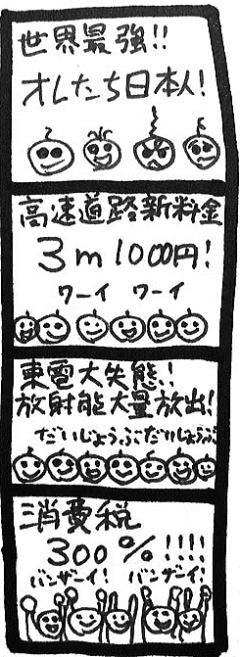 世界最強!!
オレたち日本人!
高速道路新料金
3m1000円!
ワーイ ワーイ
東電大失態!!
放射能大量放出!
だいじょうぶだいじょうぶ
消費税
300%!!!!
バンザーイ! バンザーイ!